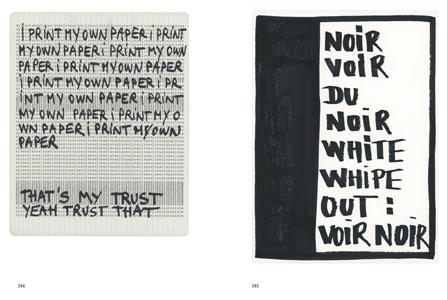 I PRINT MY OWN PAPER i PRINT
MY OWN PAPER i PRINT MY OWN
PAPER i PRINT MY OWN PAPER
i PRINT MY OWN PAPER i PR
INT MY OWN PAPER i PRINT
MY OWN PAPER i PRINT MY O
WN PAPER i PRINT MY OWN
PAPER
THAT'S MY TRUST
YEAH TRUST THAT
244
NOiR
VOiR
DU
NOiR
WHiTE
WHiPE
OUT :
VOiR NOiR
245